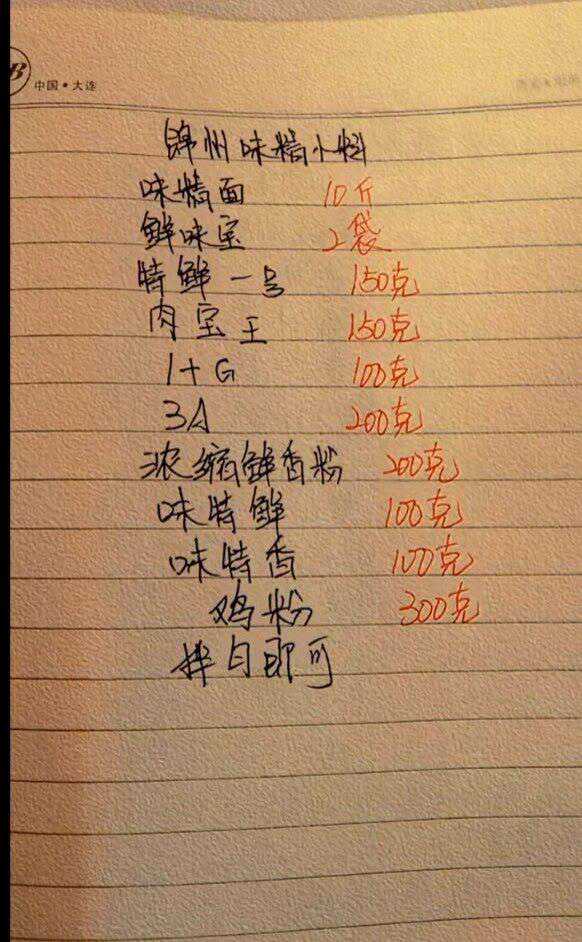 B
中国·大连
锦州味精小料
味精面 10斤
鲜味宝 2袋
特鲜一号 150克
肉宝王 150克
I+G 100克
3A 200克
浓缩鲜香粉 200克
味特鲜 100克
味特香 100克
鸡粉 300克
拌匀即可